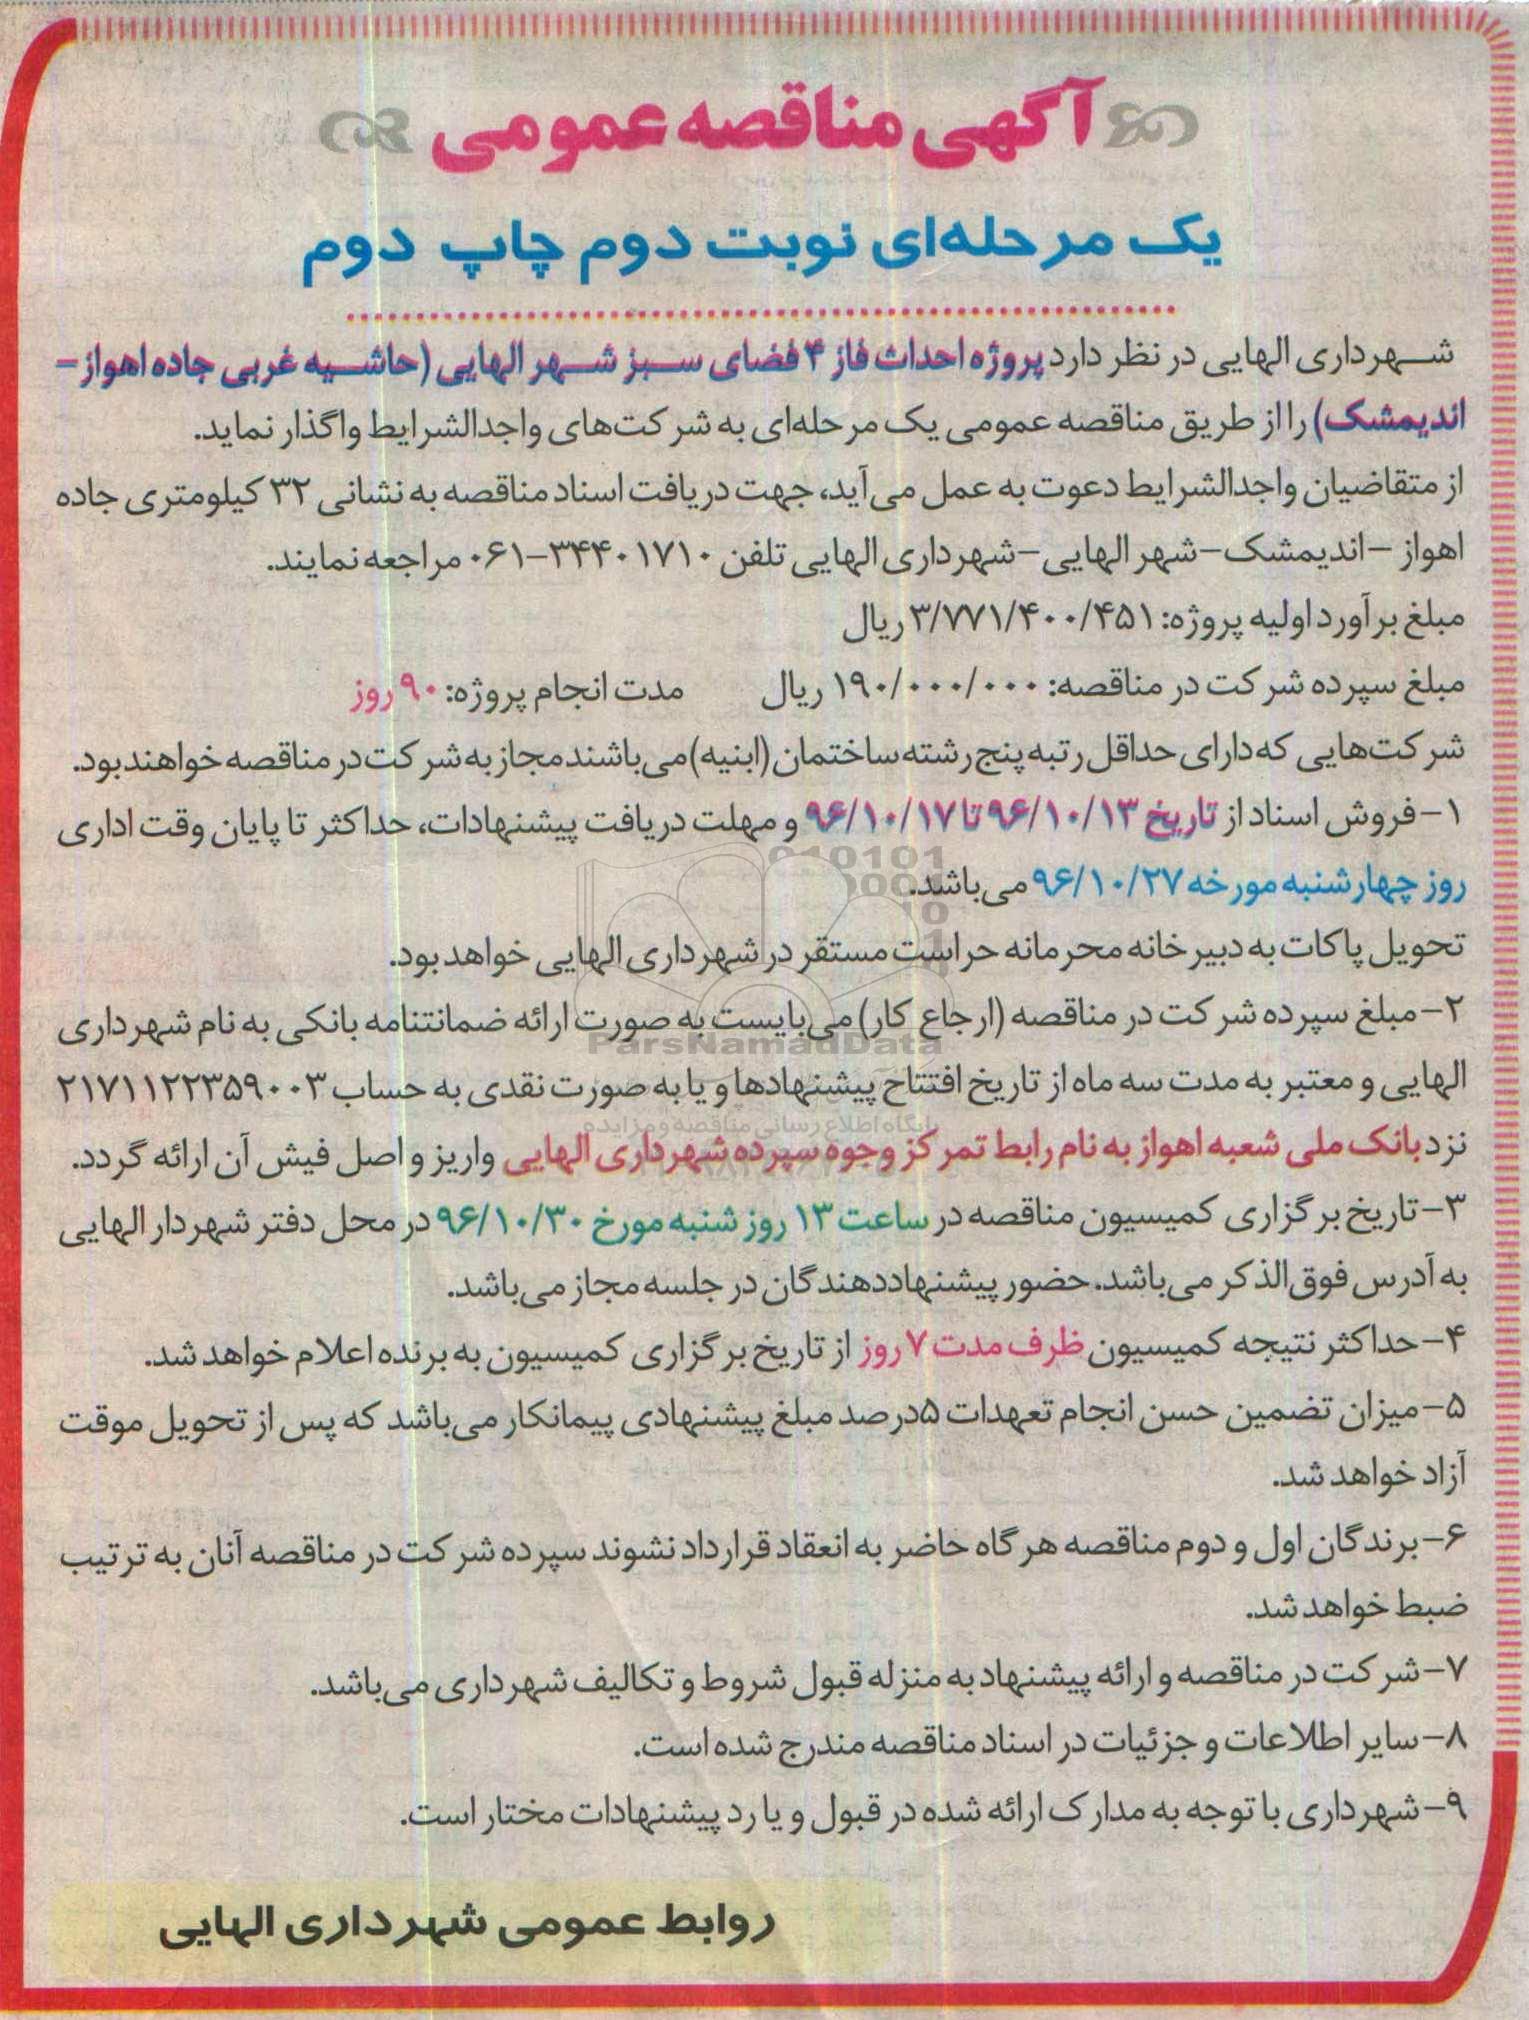 آگهی مناقصه عمومی
یک مرحله‌ای نوبت دوم چاپ دوم
شهرداری الهایی در نظر دارد پروژه احداث فاز ۴ فضای سبز شهر الهایی (حاشیه غربی جاده اهواز –
اندیمشک) را از طریق مناقصه عمومی یک مرحله‌ای به شرکت‌های واجدالشرایط واگذار نماید.
از متقاضیان واجدالشرایط دعوت به عمل می‌آید، جهت دریافت اسناد مناقصه به نشانی ۳۲ کیلومتری جاده
اهواز –اندیمشک–شهر الهایی–شهرداری الهایی تلفن ۳۴۴۰۱۷۱۰–۰۶۱ مراجعه نمایند.
مبلغ برآورد اولیه پروژه: ۳/۷۷۱/۴۰۰/۴۵۱ ریال
مبلغ سپرده شرکت در مناقصه: ۱۹۰/۰۰۰/۰۰۰ ریال مدت انجام پروژه: ۹۰ روز
شرکت‌هایی که دارای حداقل رتبه پنج رشته ساختمان (ابنیه) می‌باشند مجاز به شرکت در مناقصه خواهند بود.
۱– فروش اسناد از تاریخ ۹۶/۱۰/۱۳ تا ۹۶/۱۰/۱۷ و مهلت دریافت پیشنهادات، حداکثر تا پایان وقت اداری
روز چهارشنبه مورخه ۹۶/۱۰/۲۷ می‌باشد.
تحویل پاکات به دبیرخانه محرمانه حراست مستقر در شهرداری الهایی خواهد بود.
۲– مبلغ سپرده شرکت در مناقصه (ارجاع کار) می‌بایست به صورت ارائه ضمانتنامه بانکی به نام شهرداری
ParsNamadData
الهایی و معتبر به مدت سه ماه از تاریخ افتتاح پیشنهادها و یا به صورت نقدی به حساب ۲۱۷۱۱۲۲۳۵۹۰۰۳
پایگاه اطلاع رسانی مناقصه و مزایده
نزد بانک ملی شعبه اهواز به نام رابط تمرکز وجوه سپرده شهرداری الهایی واریز و اصل فیش آن ارائه گردد.
۳– تاریخ برگزاری کمیسیون مناقصه در ساعت ۱۳ روز شنبه مورخ ۹۶/۱۰/۳۰ در محل دفتر شهردار الهایی
به آدرس فوق‌الذکر می‌باشد. حضور پیشنهاددهندگان در جلسه مجاز می‌باشد.
۴– حداکثر نتیجه کمیسیون ظرف مدت ۷ روز از تاریخ برگزاری کمیسیون به برنده اعلام خواهد شد.
۵– میزان تضمین حسن انجام تعهدات ۵درصد مبلغ پیشنهادی پیمانکار می‌باشد که پس از تحویل موقت
آزاد خواهد شد.
۶– برندگان اول و دوم مناقصه هرگاه حاضر به انعقاد قرارداد نشوند سپرده شرکت در مناقصه آنان به ترتیب
ضبط خواهد شد.
۷– شرکت در مناقصه و ارائه پیشنهاد به منزله قبول شروط و تکالیف شهرداری می‌باشد.
۸– سایر اطلاعات و جزئیات در اسناد مناقصه مندرج شده است.
۹– شهرداری با توجه به مدارک ارائه شده در قبول و یا رد پیشنهادات مختار است.
روابط عمومی شهرداری الهایی